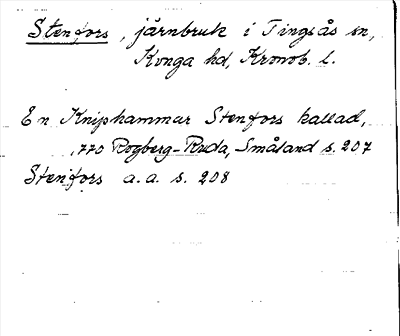 Stenfors, järnbruk i Tingsås sn,
Konga hd, Kronob. l.
En Kniphammar Stenfors kallad,
1770 Rogberg-Ruda, Småland s. 207
Stenfors a. a. s. 208